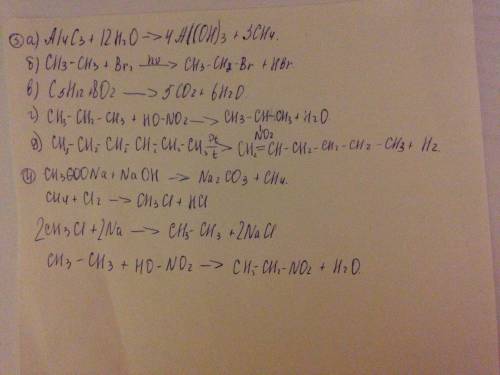 ③ а) Al4C3 + 12H2O → 4Al(OH)3 + 3CH4.
б) CH3-CH3 + Br2 hν→ CH3-CH2-Br + HBr.
в) C5H12 + 8O2 → 5CO2 + 6H2O.
г) CH3-CH2-CH3 + HO-NO2 → CH3-CH-CH3 + H2O
NO2
д) CH3-CH2-CH2-CH2-CH2-CH3 Pt, t→ CH2=CH-CH2-CH2-CH2-CH3 + H2.
④ CH3COONa + NaOH → Na2CO3 + CH4.
CH4 + Cl2 → CH3Cl + HCl
2CH3Cl + 2Na → CH3-CH3 + 2NaCl
CH3-CH3 + HO-NO2 → CH3-CH2-NO2 + H2O.